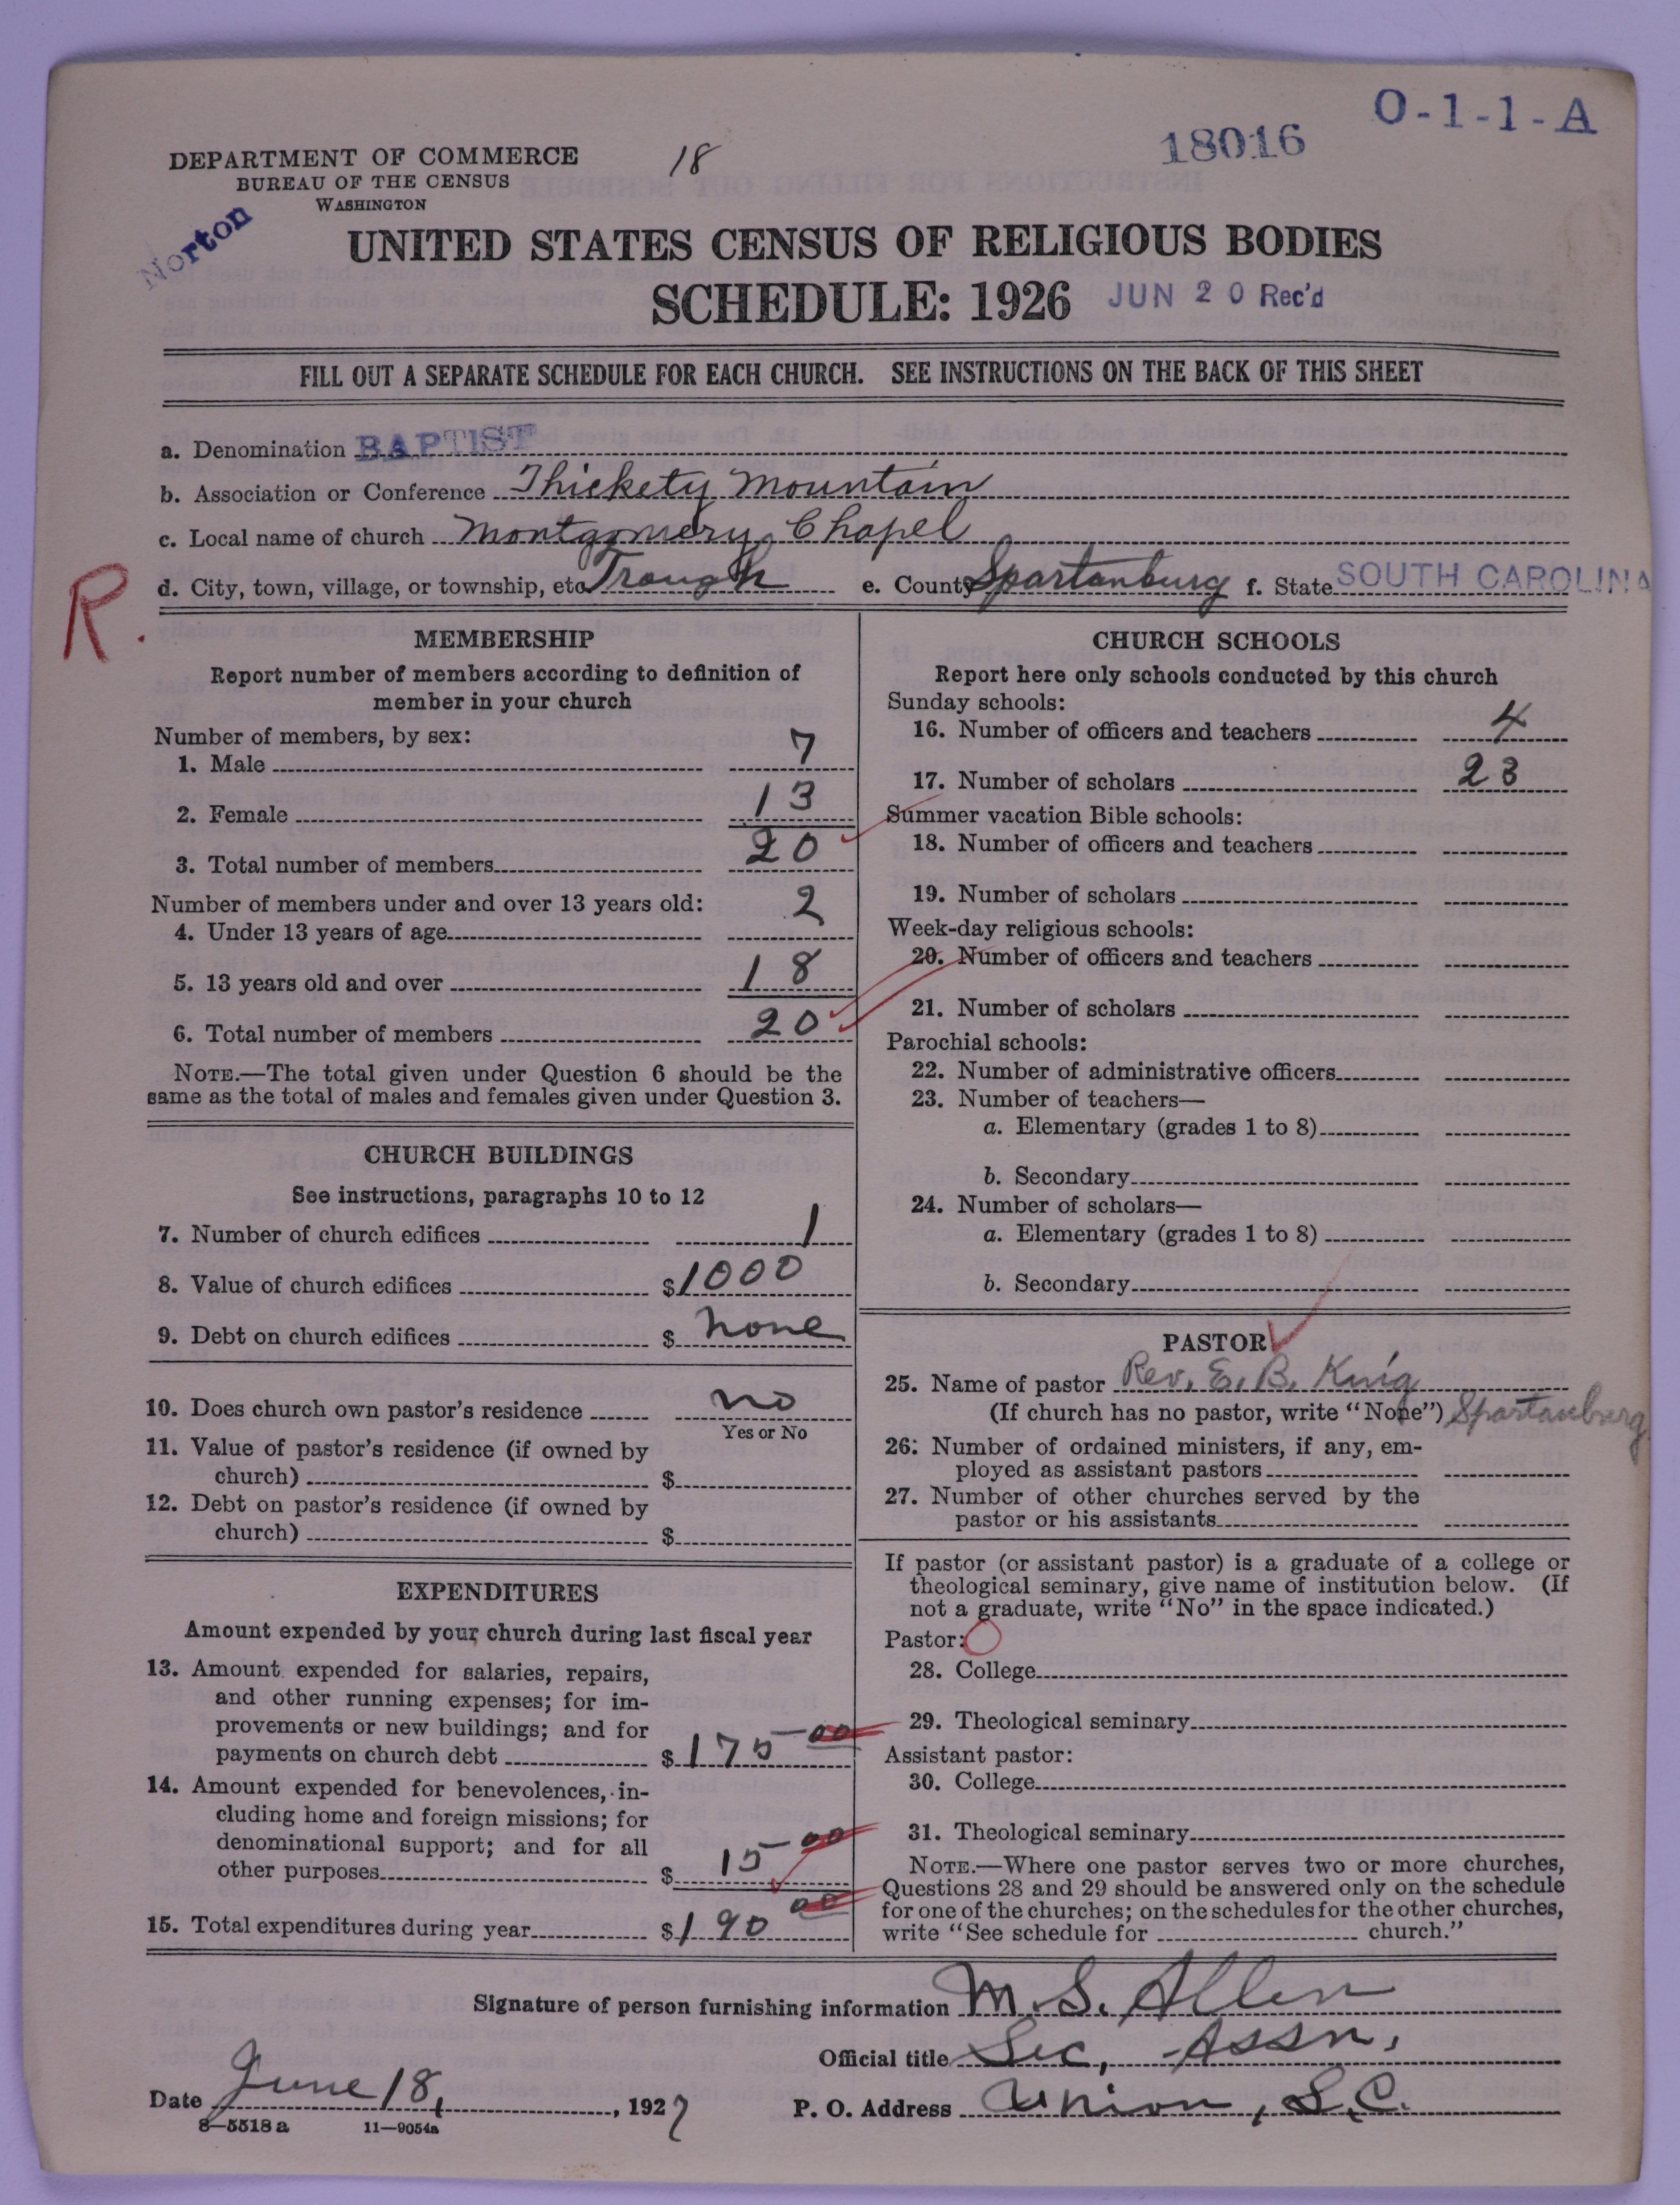 O-1-1-A
18016
18
DEPARTMENT OF COMMERCE
BUREAU OF THE CENSUS
WASHINGTON
Norton
UNITED STATES CENSUS OF RELIGIOUS BODIES
SCHEDULE: 1926 JUN 20 Rec'd
FILL OUT A SEPARATE SCHEDULE FOR EACH CHURCH. SEE INSTRUCTIONS ON THE BACK OF THIS SHEET
a. Denomination BAPTIST
b. Association or Conference Thickety Mountain
c. Local name of church Montgomery Chapel
d. City, town, village, or township, etc. Trough e. County Spartanburg f. State SOUTH CAROLINA
R.
MEMBERSHIP
Report number of members according to definition of
member in your church
Number of members, by sex:
1. Male 7
2. Female 13
3. Total number of members 20
Number of members under and over 13 years old:
4. Under 13 years of age 2
5. 13 years old and over 18
6. Total number of members 20
NOTE.—The total given under Question 6 should be the
same as the total of males and females given under Question 3.
CHURCH BUILDINGS
See instructions, paragraphs 10 to 12
7. Number of church edifices 1
8. Value of church edifices $1000
9. Debt on church edifices $ none
10. Does church own pastor's residence no
Yes or No
11. Value of pastor's residence (if owned by
church) $
12. Debt on pastor's residence (if owned by
church) $
EXPENDITURES
Amount expended by your church during last fiscal year
13. Amount expended for salaries, repairs,
and other running expenses; for im-
provements or new buildings; and for
payments on church debt $175 00
14. Amount expended for benevolences, in-
cluding home and foreign missions; for
denominational support; and for all
other purposes $ 15 00
15. Total expenditures during year $190 00
CHURCH SCHOOLS
Report here only schools conducted by this church
Sunday schools:
16. Number of officers and teachers 4
17. Number of scholars 23
Summer vacation Bible schools:
18. Number of officers and teachers
19. Number of scholars
Week-day religious schools:
20. Number of officers and teachers
21. Number of scholars
Parochial schools:
22. Number of administrative officers
23. Number of teachers—
a. Elementary (grades 1 to 8)
b. Secondary
24. Number of scholars—
a. Elementary (grades 1 to 8)
b. Secondary
PASTOR
25. Name of pastor Rev. E. B. King
(If church has no pastor, write "None") Spartanburg
26. Number of ordained ministers, if any, em-
ployed as assistant pastors
27. Number of other churches served by the
pastor or his assistants
If pastor (or assistant pastor) is a graduate of a college or
theological seminary, give name of institution below. (If
not a graduate, write "No" in the space indicated.)
Pastor:
28. College
29. Theological seminary
Assistant pastor:
30. College
31. Theological seminary
NOTE.—Where one pastor serves two or more churches,
Questions 28 and 29 should be answered only on the schedule
for one of the churches; on the schedules for the other churches,
write "See schedule for church."
Signature of person furnishing information M. S. Allen
Official title Sec, Assn.
Date June 18, 1927 P. O. Address Union, S.C.
8—5518a 11—9054a